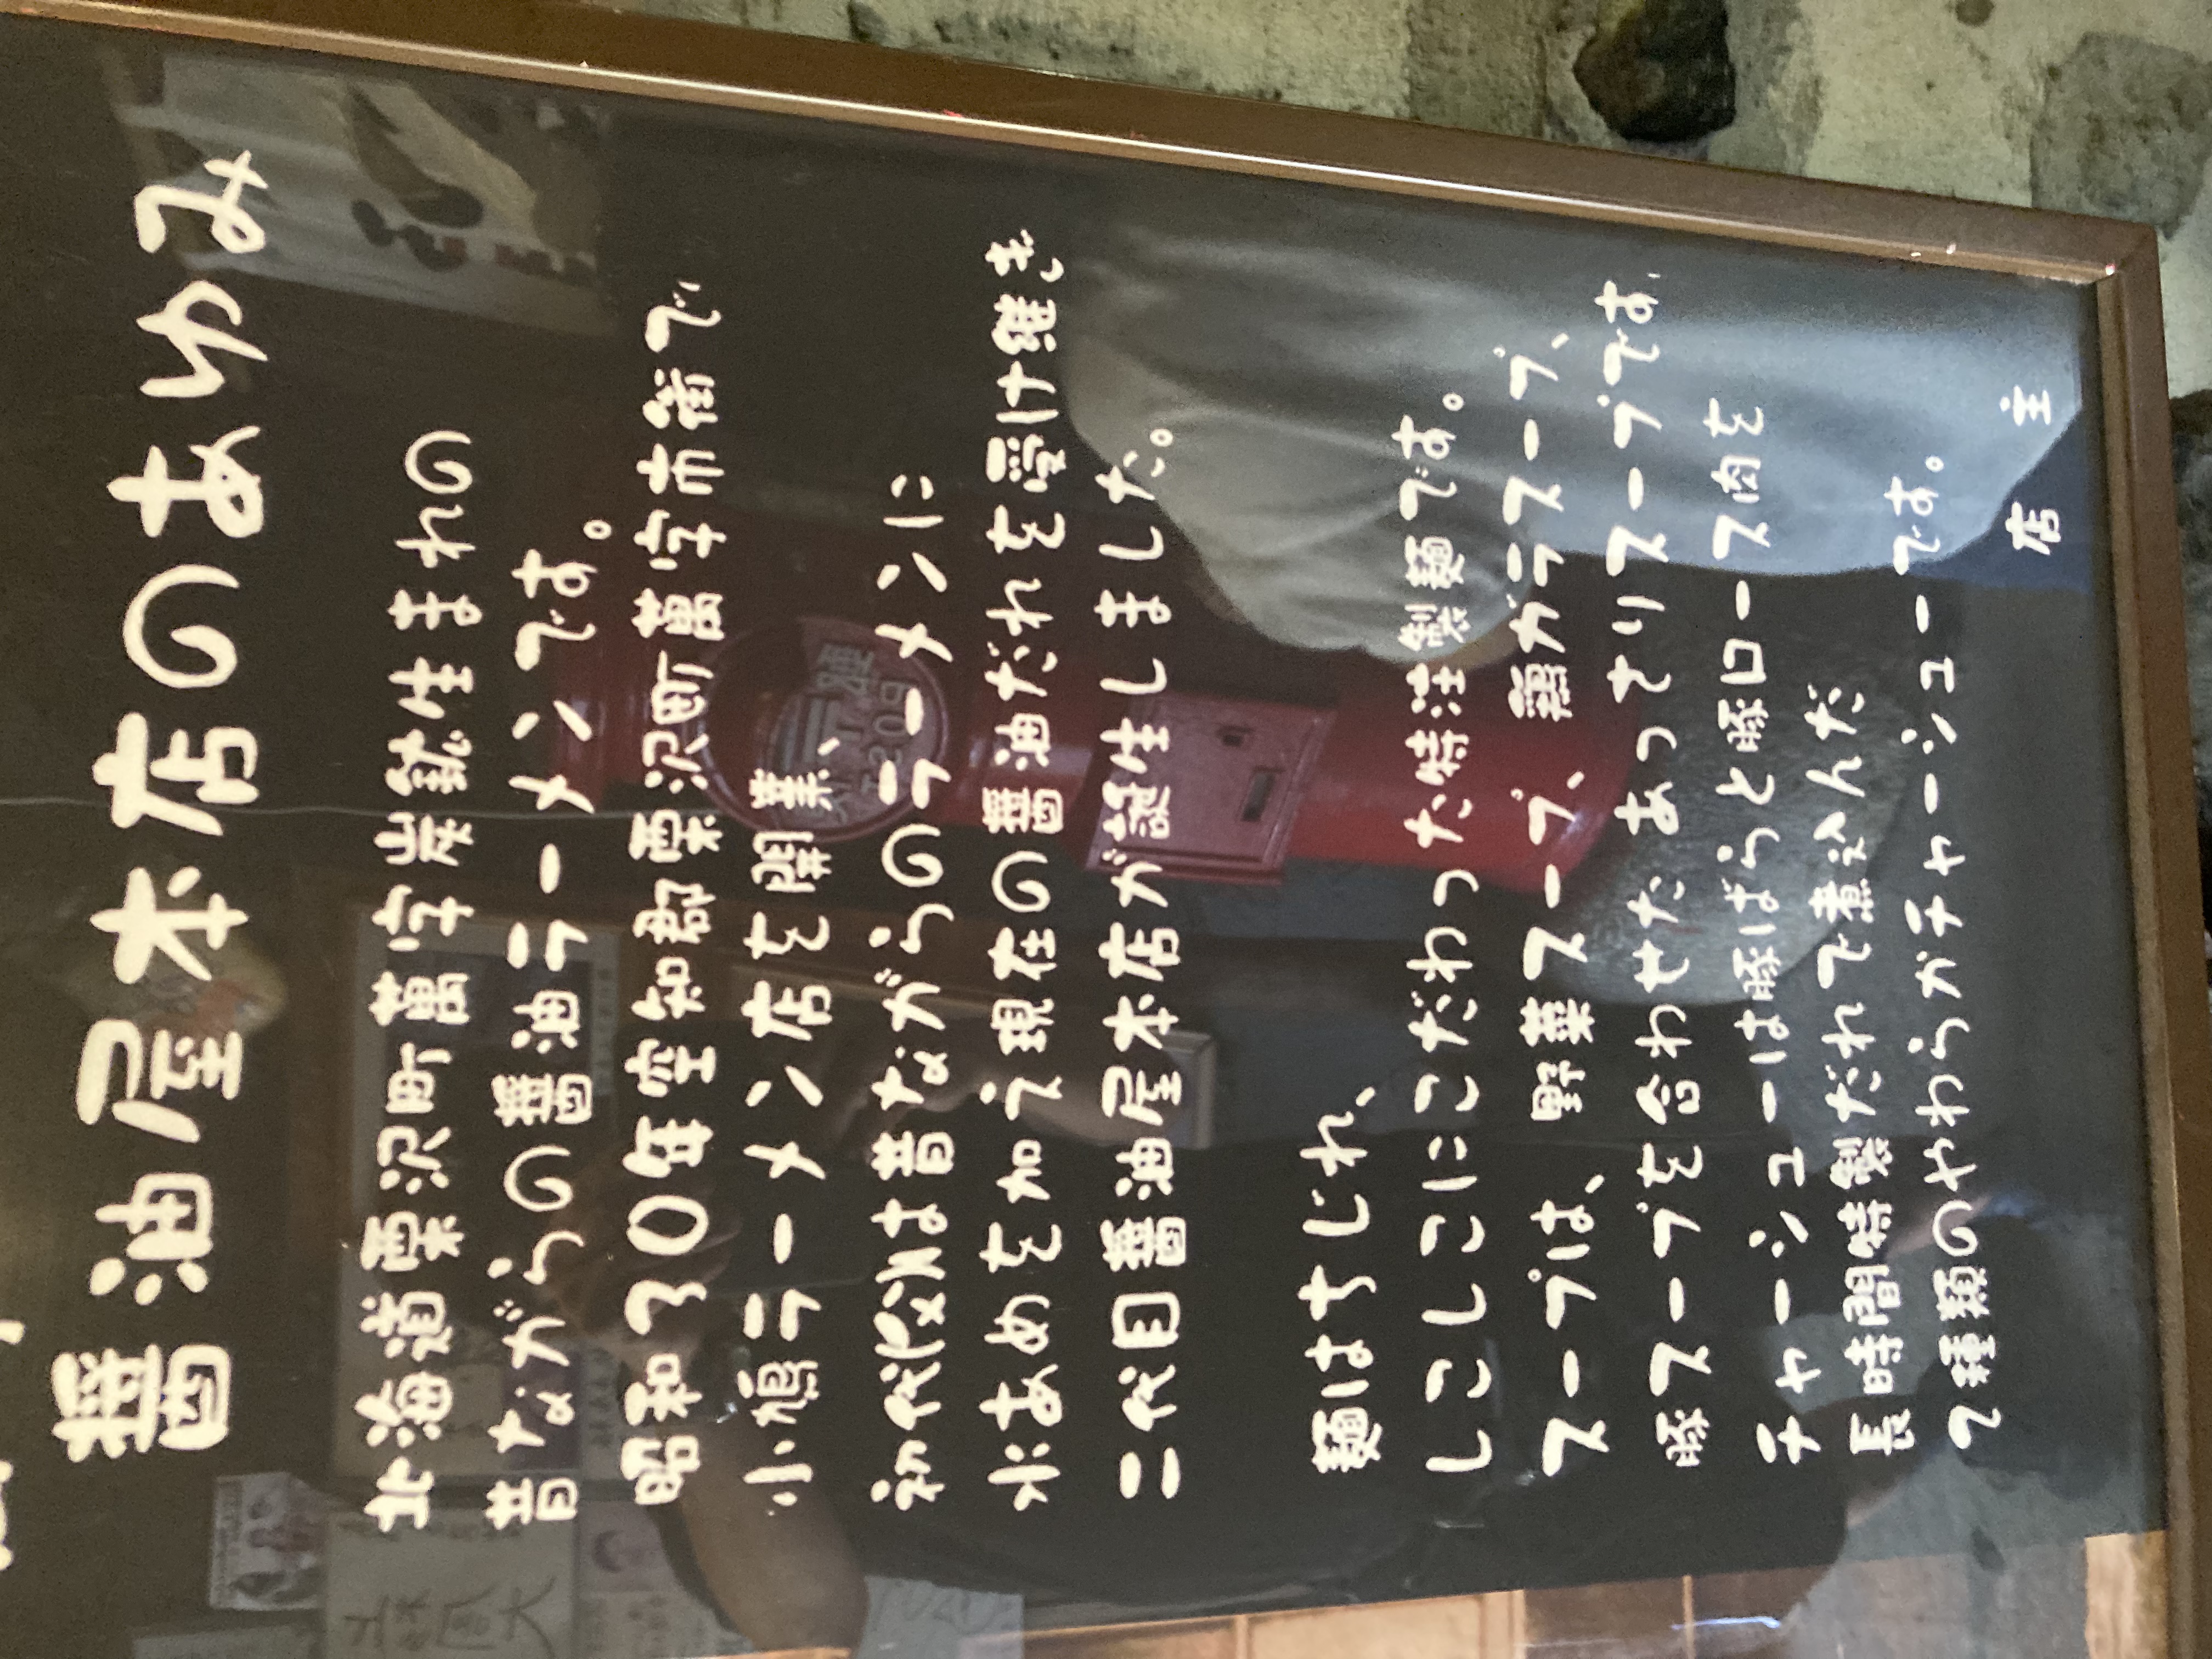 醤油屋本店のあゆみ
北海道栗沢町萬字炭鉱生まれの
昔ながらの醤油ラーメンです。
昭和30年空知郡栗沢町萬字市街で
小鳩ラーメン店を開業、
初代父は昔ながらのラーメンに
水あめを加え現在の醤油だれを受け継ぎ
二代目醤油屋本店が誕生しました。
麺はちぢれ、
しこしこにこだわった特注製麺です。
スープは、野菜スープ、鶏ガラスープ、
豚スープを合わせたあっさりスープです
チャーシューは豚ばらと豚ロース肉を
長時間特製だれで煮込んだ
2種類のやわらかチャーシューです。
店主